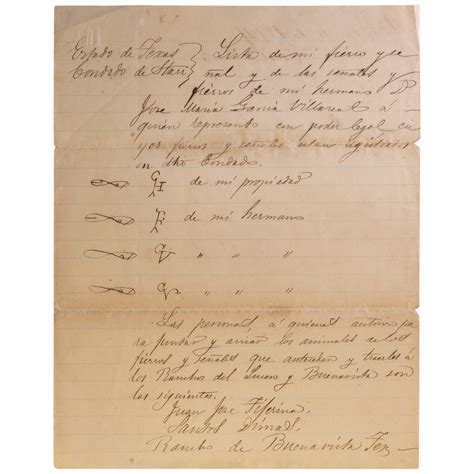 Estado de Texas } Lista de mi fierro y se
Condado de Starr } ñal y de las señales y
fierros de mi hermano Dn
Jose Maria Garcia Villareal a
quien represento con poder legal cu
yos fierros y señales estan registrados
en dho Condado.
de mi propiedad
de mi hermano
" " "
" " "
Las personas, á quienes autorizo pa
ra y los animales de los
fierros y señales que anteceden y traerlos á
los Ranchos del Lucero y Buenavista son
las siguientes.
Juan Jose Tijerina.
Santos
Rancho de Buenavista Tex